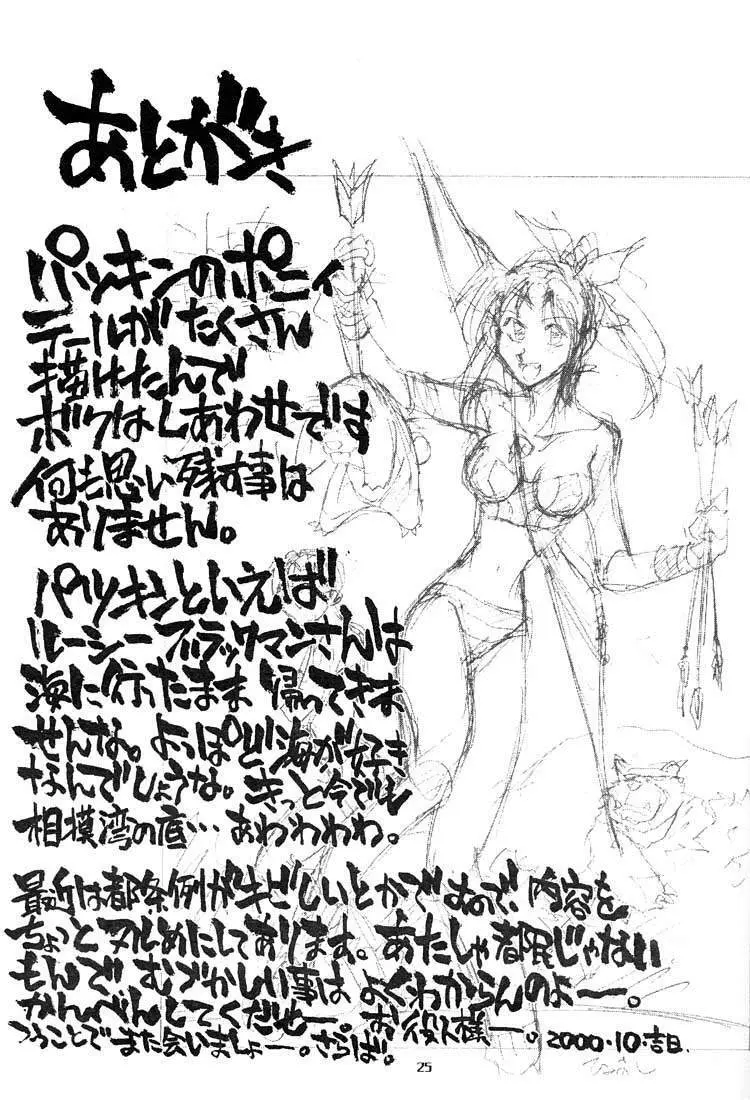 あとがき
パツキンのポニィ
テールがたくさん
描けたんで
ボクはしあわせです
何も思い残す事は
ありません。
パツキンといえば
ルーシーブラックマンさんは
海に行ったまま帰ってきま
せんな。よっぽど海が好き
なんでしょうな。きっと今でも
相模湾の底…あわわわわ。
最近は都条例がキビしいとかですので、内容を
ちょっとヌルめにしてあります。あたしゃ都民じゃない
もんで むづかしい事は よくわからんのよー。
かんべんしてくだせー。お役人様ー。
つうことで また会いましょー。さらば。
2000.10.吉日
25